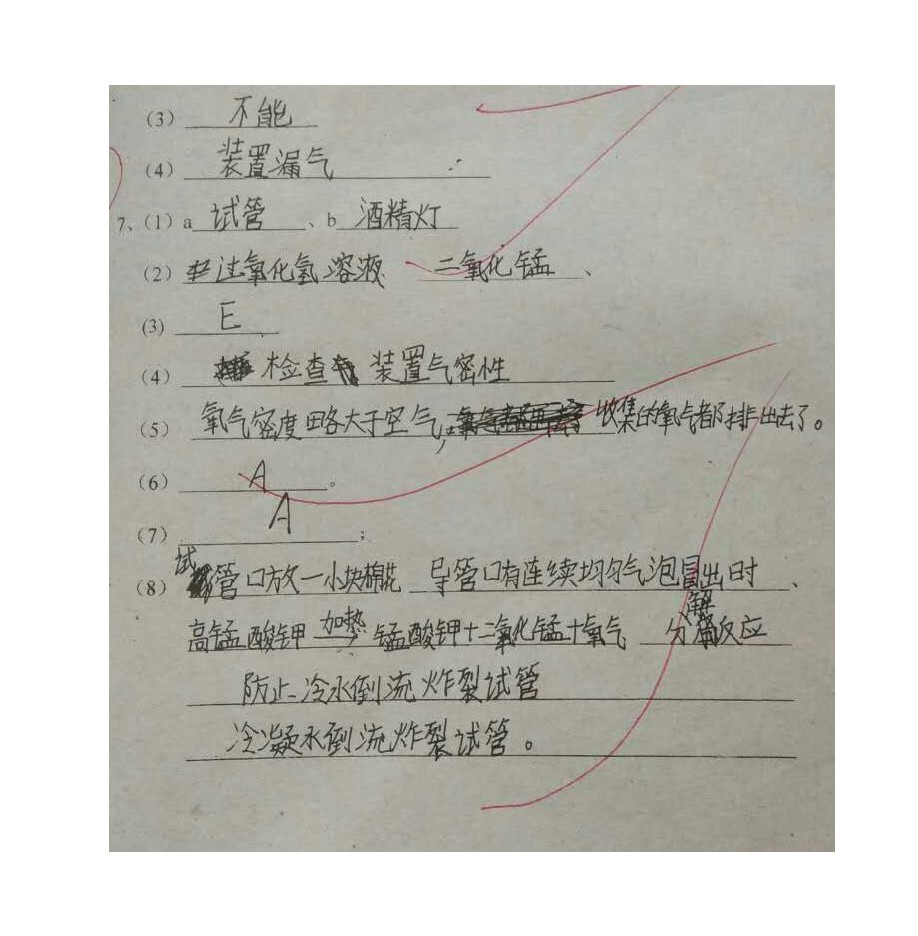 (3) 不能
(4) 装置漏气
7、(1) a 试管 、b 酒精灯
(2) 过氧化氢溶液 二氧化锰 、
(3) E
(4) 检查 装置气密性
(5) 氧气密度略大于空气, 收集的氧气都排出去了。
(6) A 。
(7) A ;
(8) 试管口放一小块棉花 导管口有连续均匀气泡冒出时 、
高锰酸钾 加热→ 锰酸钾+二氧化锰+氧气 分解反应
防止冷水倒流炸裂试管
冷凝水倒流炸裂试管。